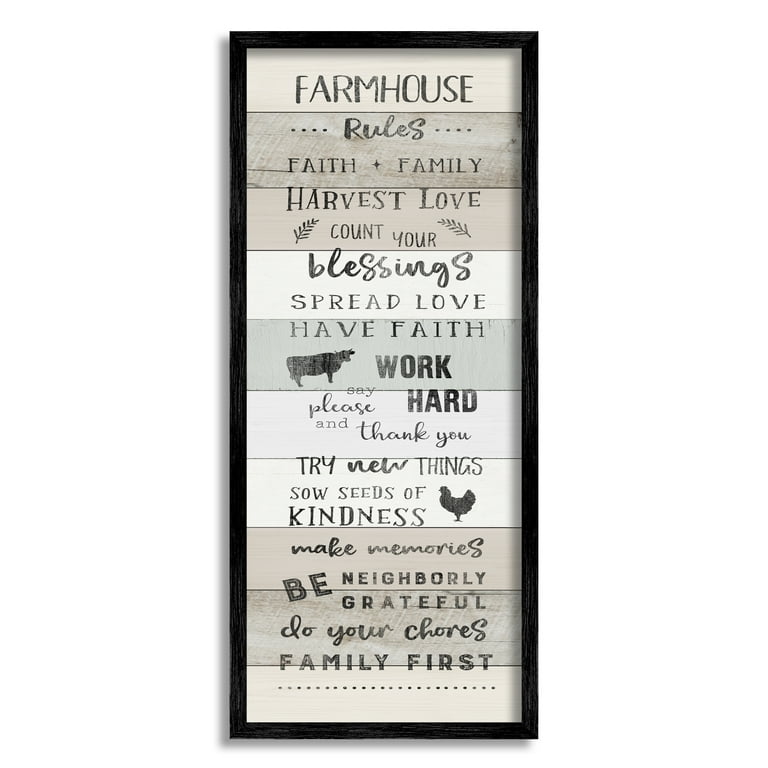 FARMHOUSE
Rules
FAITH + FAMILY
HARVEST LOVE
COUNT YOUR
blessings
SPREAD LOVE
HAVE FAITH
WORK
HARD
say
please
and
thank you
TRY new THINGS
SOW SEEDS OF
KINDNESS
make memories
BE NEIGHBORLY
GRATEFUL
do your chores
FAMILY FIRST